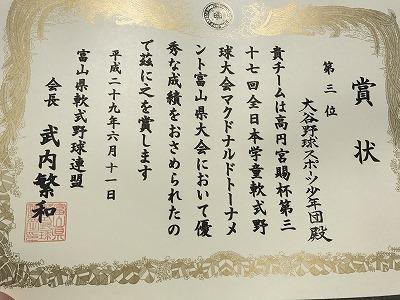 賞状
第三位
大谷野球スポーツ少年団殿
貴チームは高円宮賜杯第三
十七回全日本学童軟式野
球大会マクドナルドトーナメ
ント富山県大会において優
秀な成績をおさめられたの
で茲に之を賞します
平成二十九年六月十一日
富山県軟式野球連盟
会長 武内繁和